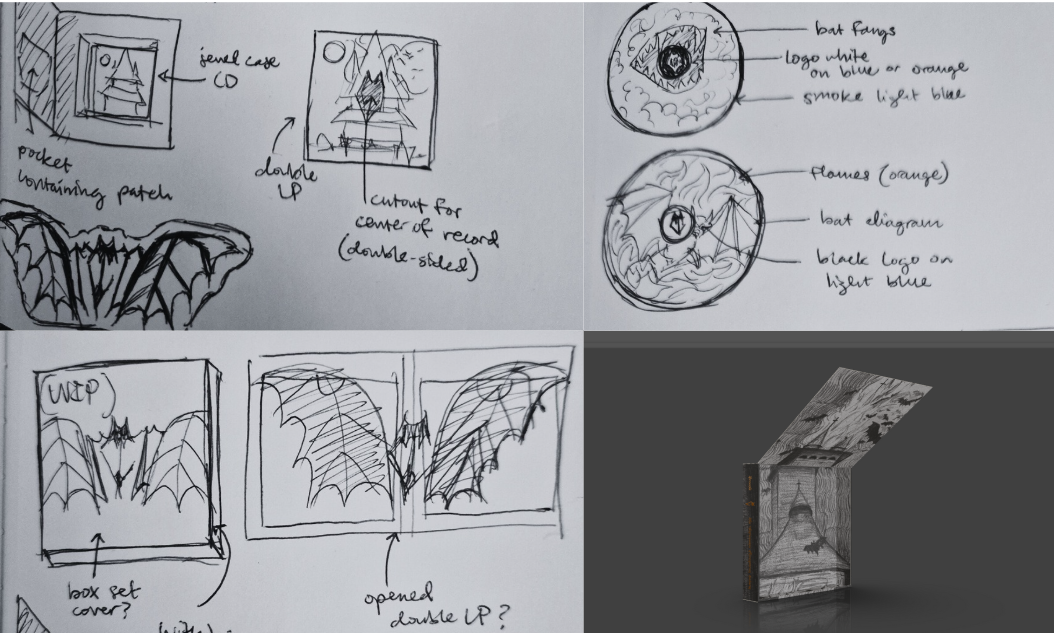 jewel case
CD
pocket
containing patch
double
LP
cutout for
center of record
(double-sided)
bat fangs
logo white
on blue or orange
smoke light blue
flames (orange)
bat diagram
black logo on
light blue
(WIP)
box set
cover?
opened
double LP?